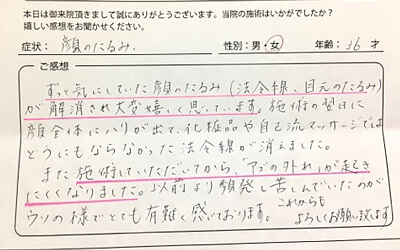 本日は御来院頂きまして誠にありがとうございます。当院の施術はいかがでしたか？
嬉しい感想をお聞かせください。
症状: 顔のたるみ. 性別: 男・女 年齢: 36 才
ご感想
ずっと気にしていた顔のたるみ（法令線、目元のたるみ）
が解消され大変嬉しく思っています。施術の翌日に
顔全体にハリが出て、化粧品や自己流マッサージでは
どうにもならなかった法令線が消えました。
また施術していただいてから、「アゴの外れ」が起き
にくくなりました。以前より頻発し苦しんでいたのが
ウソの様でとても有難く感じております。これからも
よろしくお願い致します